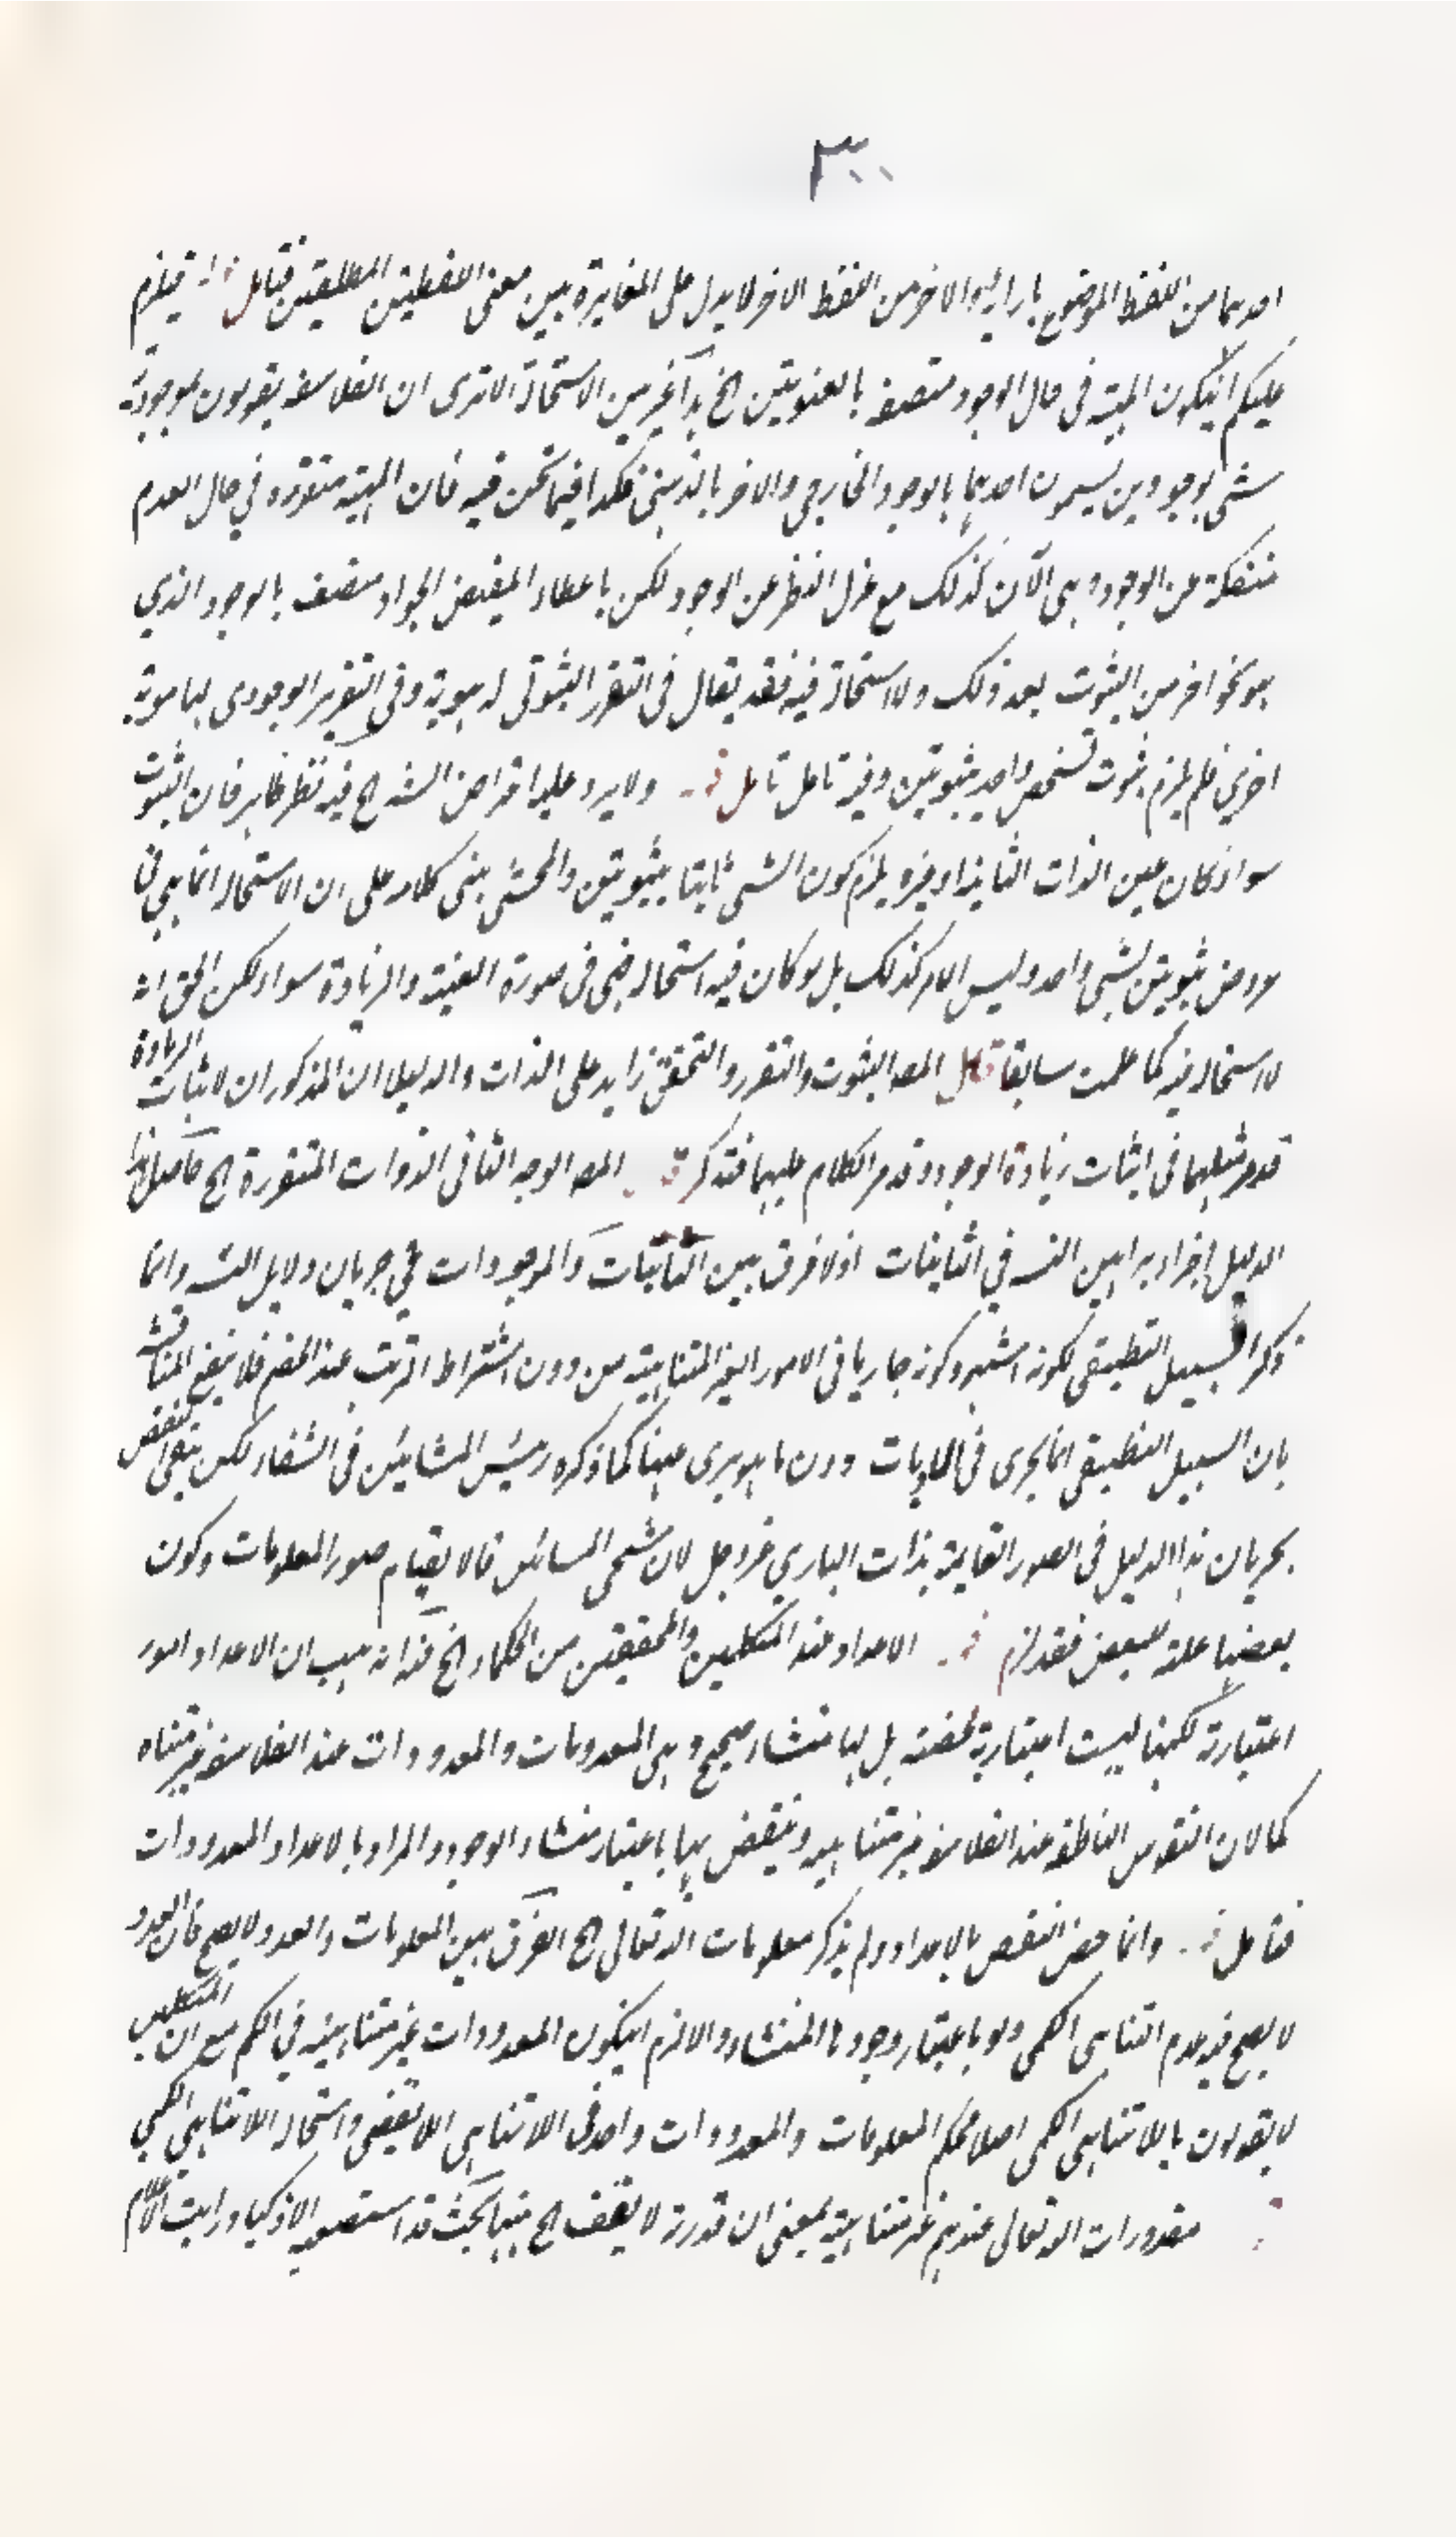 ٣٠٠
احدهما من اللفظ الموضوع بازائه والاخر من اللفظ الاخر لا يدل على المغايرة بين معنى اللفظين المطلقين فتامل قوله فيلزم
عليكم ان يكون المهية في حال الوجود متصفة بالعينيتين الخ هذا غير بين الاستحالة الا ترى ان الفلاسفة يقولون بموجودية
شئ بوجودين يسمون احدهما بالوجود الخارجي والاخر بالذهني فكذا فيما نحن فيه فان المهية متقررة في حال العدم
منفكة عن الوجود وهي الآن كذلك مع عزل النظر عن الوجود لكن باعطاء المفيض الجواد متصف بالوجود الذي
هو نحو اخر من الثبوت بعد ذلك ولا استحالة فيه فقد يقال في التقرر الثبوتي له هوية وفي التقرير الوجودي لها هوية
اخرى فلم يلزم ثبوت شخص واحد بثبوتين وفيه تامل تامل قوله ولا يرد عليه اعتراض الشه الخ فيه نظر ظاهر فان الثبوت
سواء كان عين الذات الثابتة او غيره يلزم كون الشئ ثابتا بثبوتين والمحشي بنى كلامه على ان الاستحالة انما هي في
عروض ثبوتين لشئ واحد وليس الامر كذلك بل لو كان فيه استحالة فهي في صورة العينية والزيادة سواء لكن الحق انه
لا استحالة فيه كما علمت سابقا قال المصه الثبوت والتقرر والتحقق زايد على الذات والدليلان المذكوران لاثبات الزيادة
قد مر مثلهما في اثبات زيادة الوجود وقد مر الكلام عليهما فتذكر قوله المصه الوجه الثاني الذوات المتقررة الخ حاصل هذا
الدليل اجراء براهين التسه في الثابتات اذ لا فرق بين الثابتات والموجودات في جريان دلايل التسه وانما
ذكر السبيل التطبيقي لكونه اشهر وكونه جاريا في الامور الغير المتناهية من دون اشتراط الترتب عند الخصم فلا ينفع المناقشة
بان السبيل التطبيقي انما يجري في الماديات دون ما هو بري عنها كما ذكره رئيس المشائين في الشفاء لكن يبقى النقض
بجريان هذا الدليل في الصور القايمة بذات الباري عز وجل لان شيخي المسائين قالا بقيام صور المعلومات وكون
بعضها علة لبعض فقد لزم قوله الاعداد عند المتكلمين والمحققين من الحكماء الخ فيه انه هب ان الاعداد امور
اعتبارية لكنها ليست اعتبارية محضة بل لها منشاء صحيح وهي المعدومات والمعدودات عند الفلاسفة غير متناه
كمالات النفوس الناطقة عند الفلاسفة غير متناهية وينقض بها باعتبار منشاء الوجود والمراد بالاعداد المعدودات
فتامل قوله وانما خص النقض بالاعداد ولم يذكر معلومات الله تعالى الخ الفرق بين المعلومات والعدد لا يصح فان العدد
لا يصح فيه عدم التناهي الكمي ولو باعتبار وجودها المنشاء والا لزم ان يكون المعدودات غير متناهية في الكم مع ان المتكلمين
لا يقولون باللاتناهي الكمي اصلا فحكم المعلومات والمعدودات واحد في اللاتناهي اللايقفي واستحالة اللاتناهي الكمي
قوله مقدورات الله تعالى عندهم غير متناهية بمعنى ان قدرته لا يقف الخ ههنا بحث قد استصعبه الاذكياء ورايت الاعلام